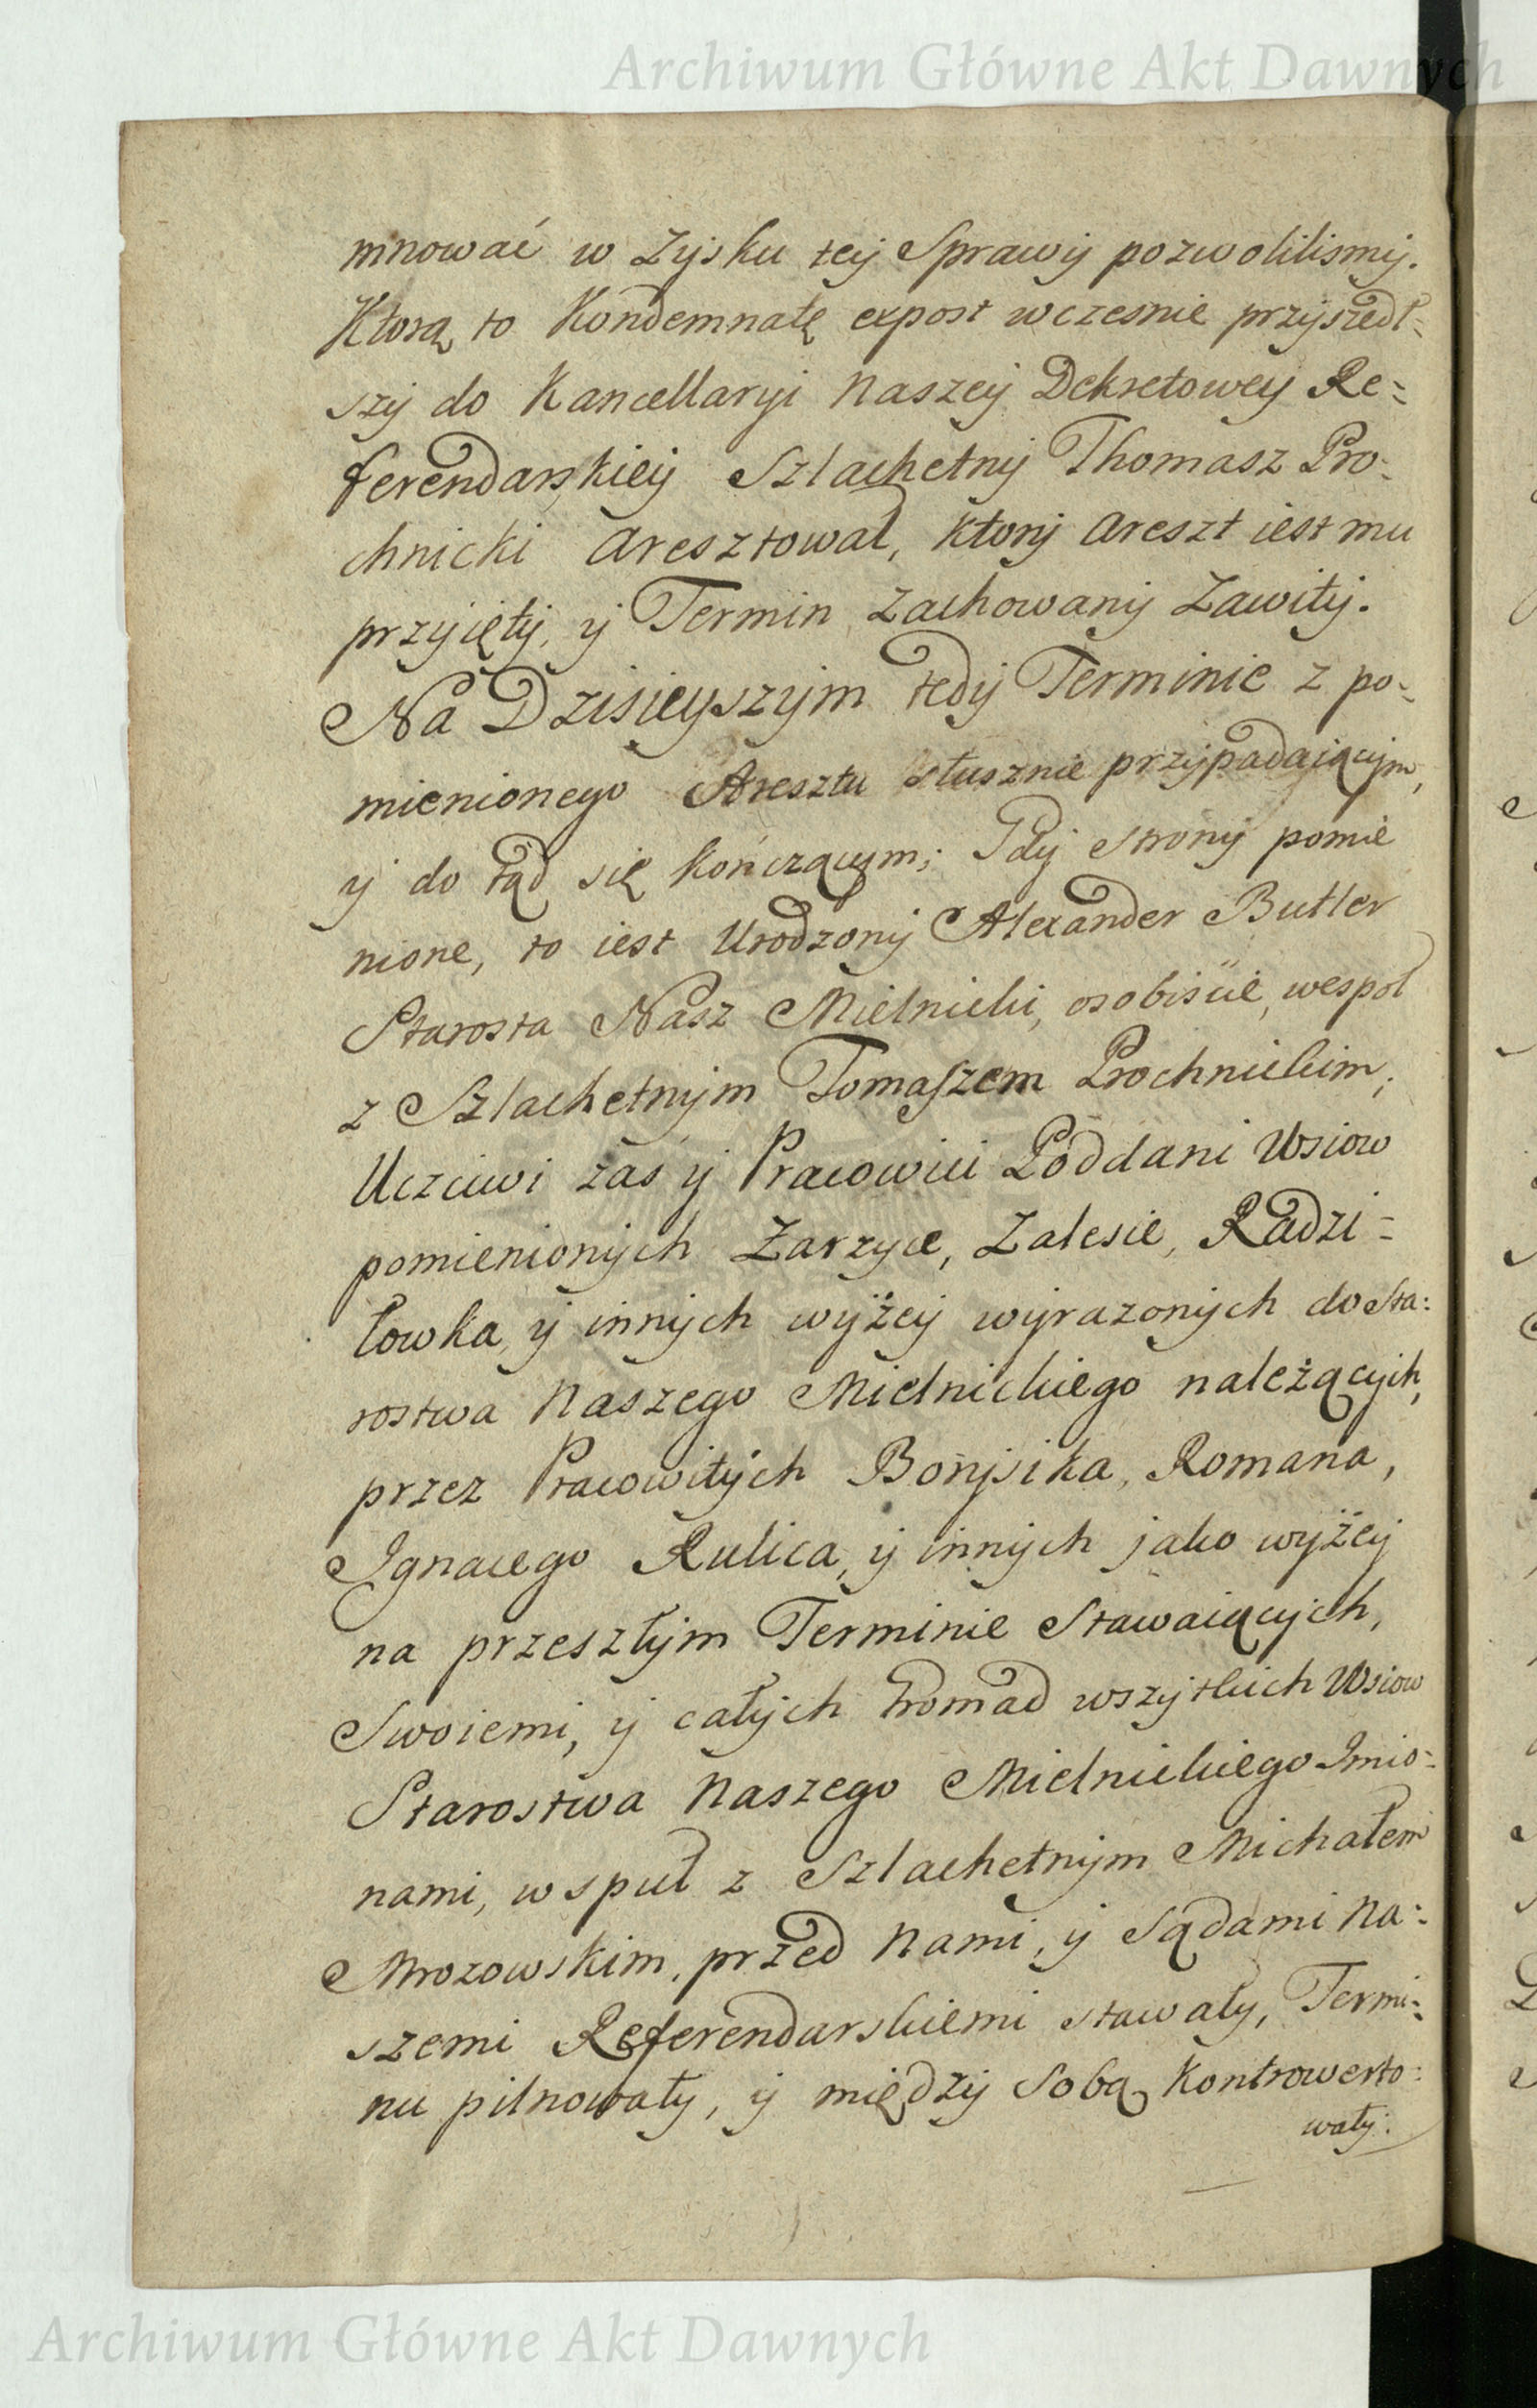 Archiwum Główne Akt Dawnych
mnować w Zysku tey Sprawy pozwolilismy.
Ktorą to Kondemnatę expost wczesnie przyszedł-
szy do Kancellaryi Naszey Dekretowey Re-
ferendarskiey Szlachetny Thomasz Pro-
chnicki Aresztował, ktory Areszt iest mu
przyięty, y Termin Zachowany Zawity.
Na Dzisieyszym tedy Terminie z po-
mienionego Aresztu słusznie przypadaiącym,
y do tąd się kończącym; Gdy Strony pomie
nione, to iest Urodzony Alexander Butler
Starosta Nasz Mielnicki, osobiście, wespoł
z Szlachetnym Tomaszem Prochnickim,
Uczciwi zaś y Pracowici Poddani Wsiow
pomienionych Zarzyce, Zalesie, Radzi-
łowka, y innych wyżey wyrazonych do Sta:
rostwa Naszego Mielnickiego należących,
przez Pracowitych Borysika, Romana,
Ignacego Rulica, y innych jako wyżey
na przeszłym Terminie Stawaiących,
Swoiemi, y całych Gromad wszytkich Wsiow
Starostwa Naszego Mielnickiego Imio-
nami, wspuł z Szlachetnym Michałem
Mrozowskim, przed Nami, y Sądami Na:
szemi Referendarskiemi stawały, Termi:
nu pilnowały, y między Sobą Kontrowerto:
wały:
Archiwum Główne Akt Dawnych